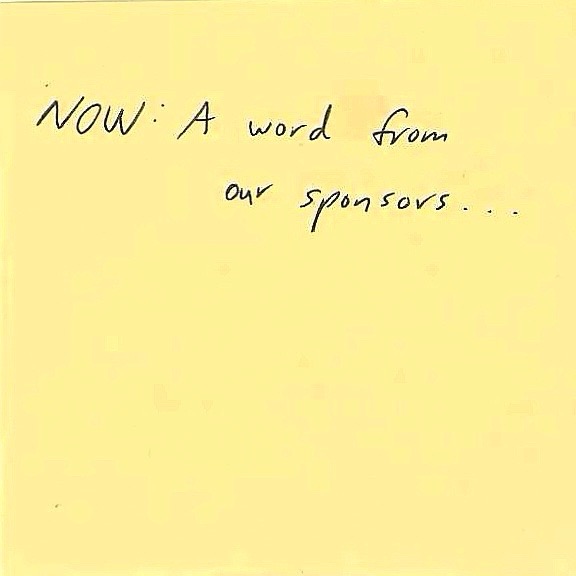 NOW: A word from
our sponsors...